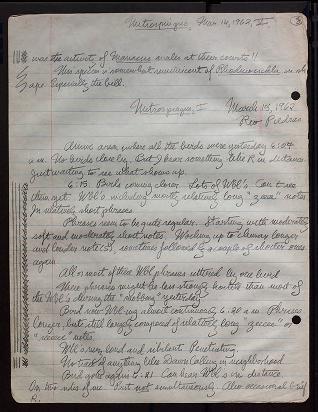 Nitrospingus, Mar 14, 1962, II
3
was the activity of Manacus males at their courts!!
This species is somewhat reminiscent of Rhodinocichla in sh
ape. Especially the bill.
Nitrospingus, I March 15, 1962
Rio Piedras
Arrive area, where all the birds were yesterday 6:04
a.m. No birds close by. But I hear something like R in distance.
Just waiting to see what shows up.
6:15. Birds coming closer. Lots of WbL's. Can't see
them yet. WbL's, including mostly relatively long notes.
In relatively short phrases.
Phrases seem to be quite regular. Starting with moderately
soft and moderately short notes. Working up to longer
and louder note(s), sometimes followed by a couple of shorter ones
again
All or most of these WbL phrases uttered by one bird
These phrases might be less strongly than most of
the WbL's during the "mobbing" yesterday
Bird now WbL-ing almost continuously 6:20 a.m. Phrases
longer, but still largely composed of relatively long or
notes.
WbL's very loud and sibilant. Penetrating.
No trace of anything like Dawn Calling in neighborhood
Bird quiet again 6:21. Can hear WbL's in distance.
On two sides of me. But not simultaneously. Also occasional
R.